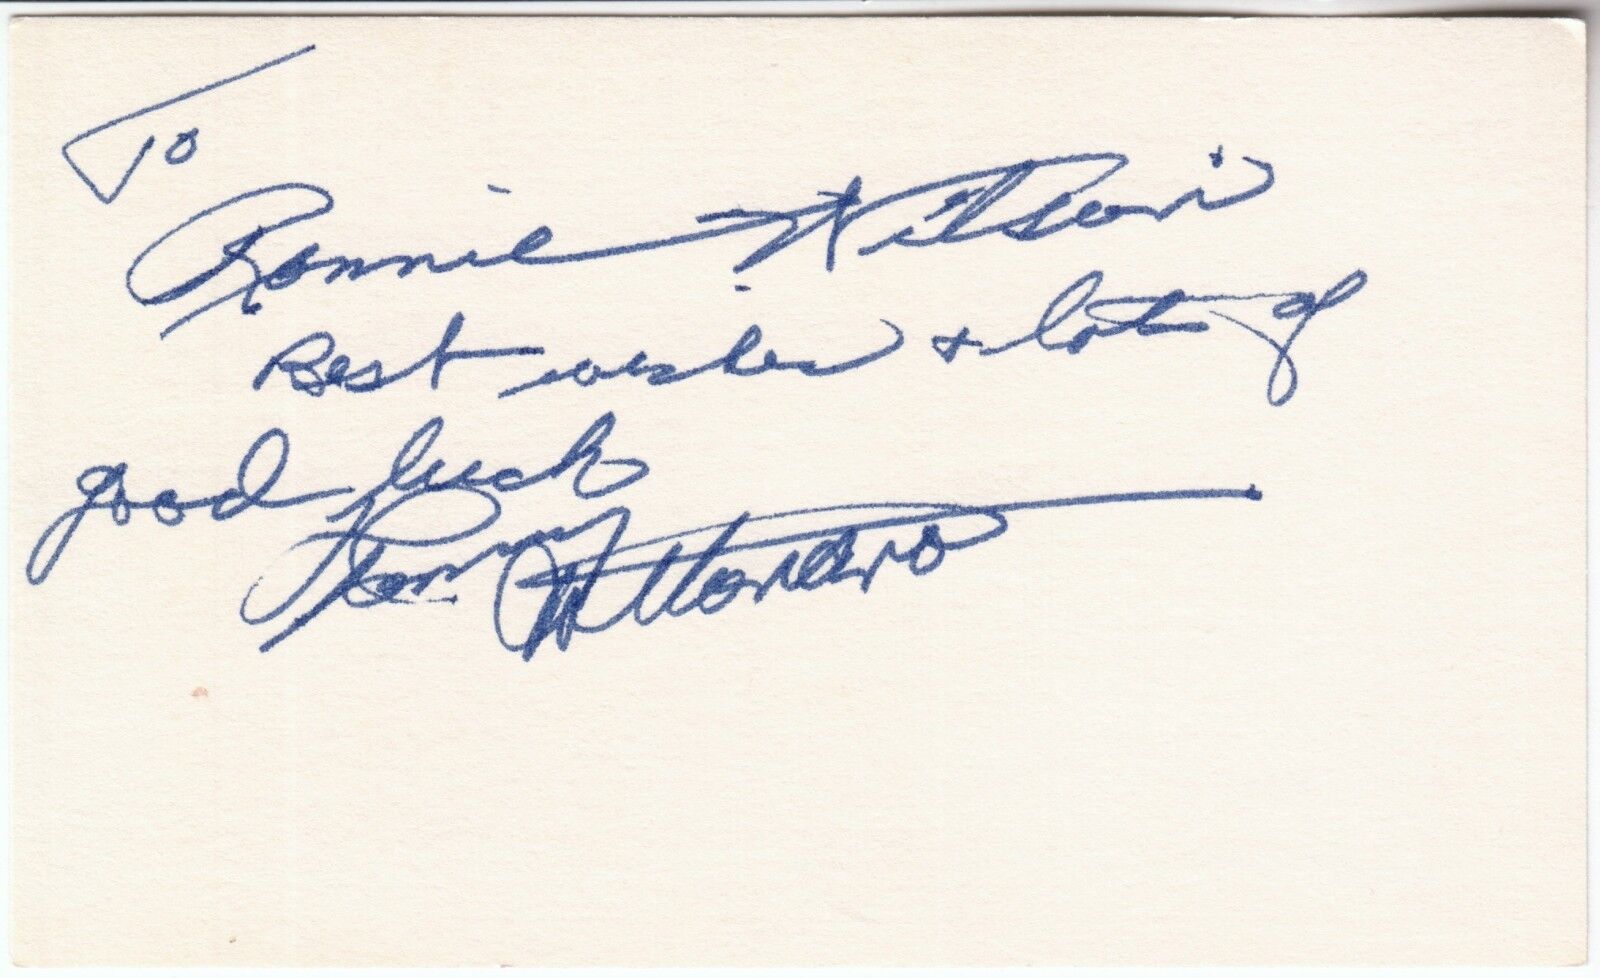 To
Ronnie Wilson
Best wishes + lots of
good luck